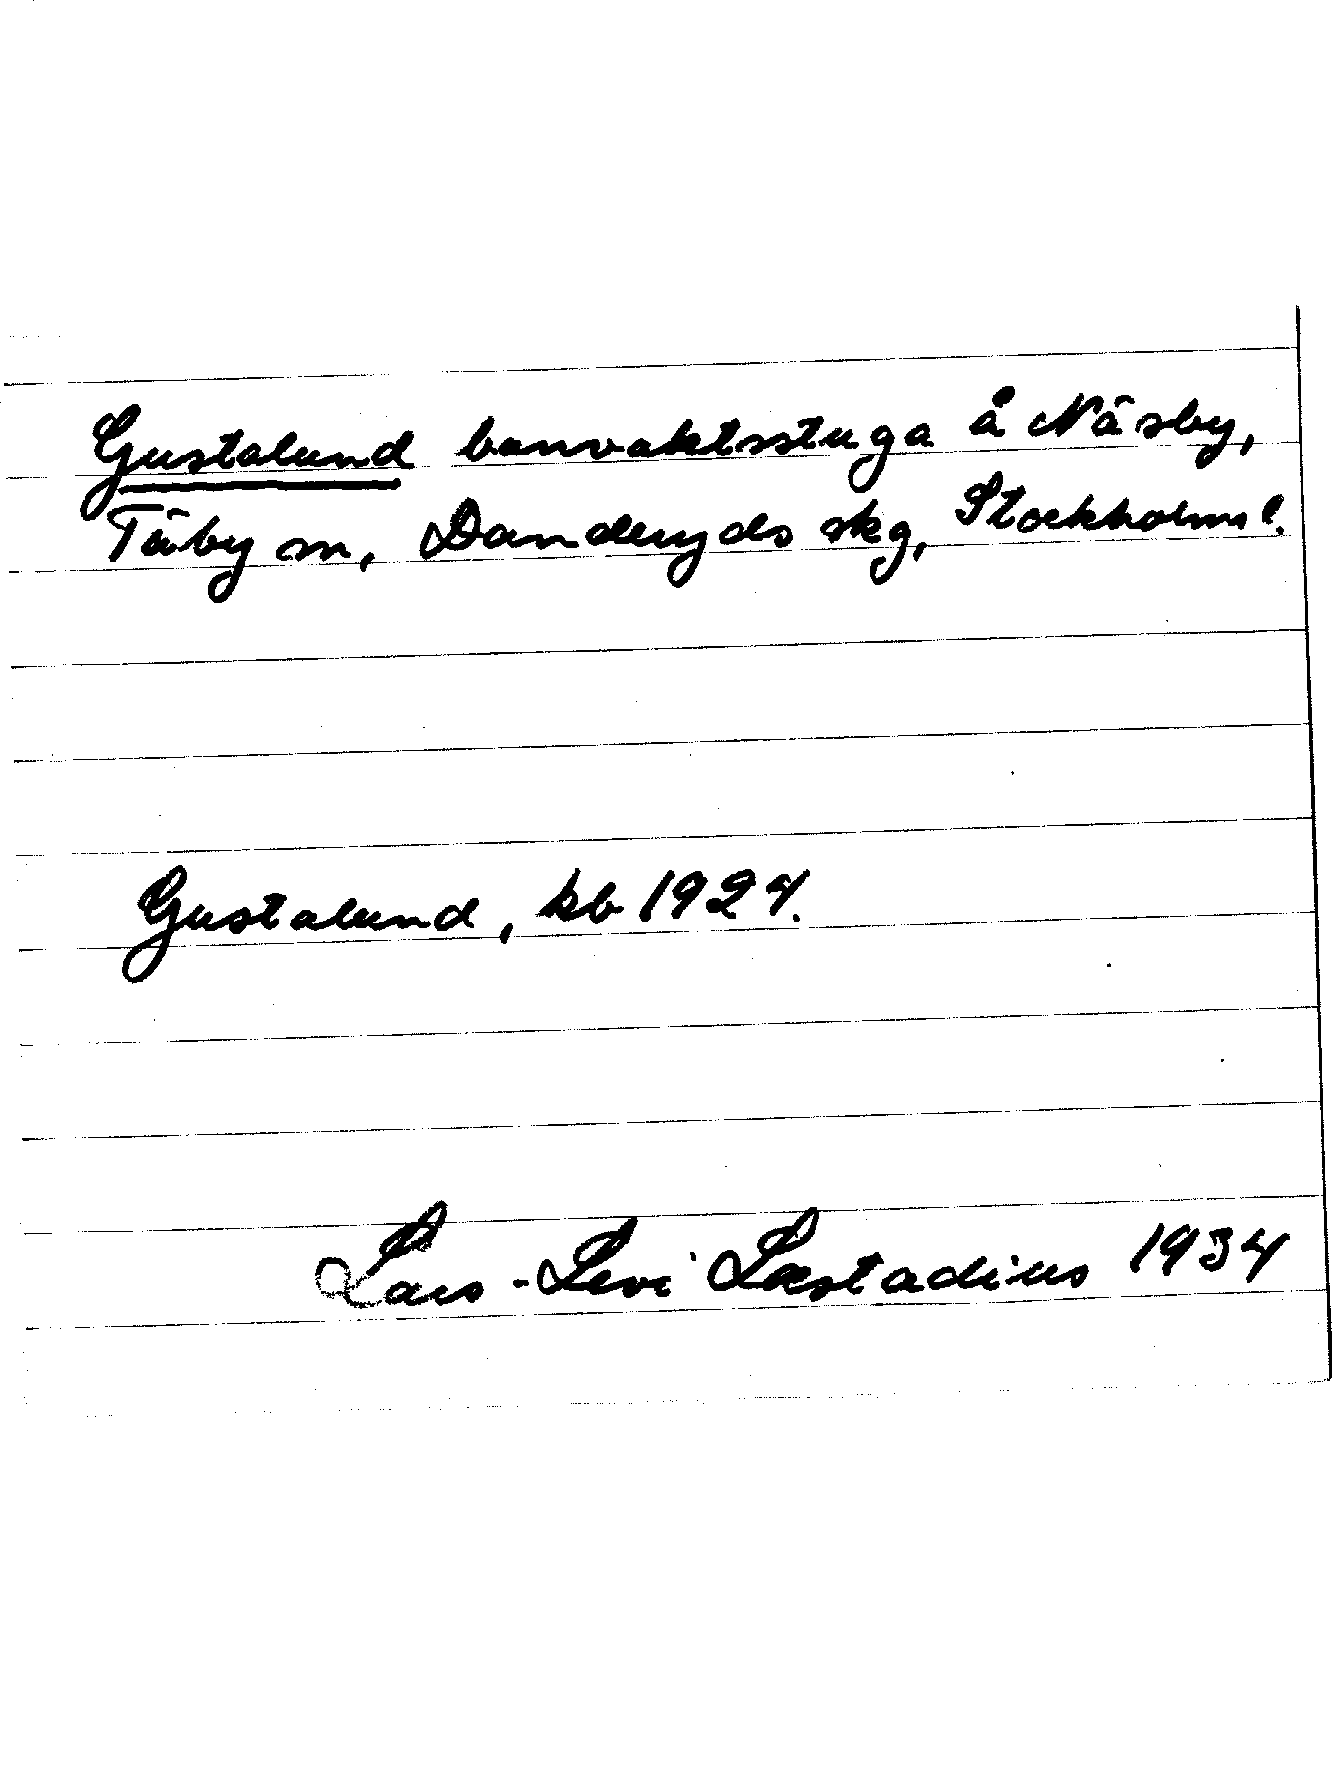 Gustalund banvaktsstuga å Näsby,
Täby sn, Danderyds skg, Stockholms l.
Gustalund, kb 1924.
Lars-Levi Læstadius 1934